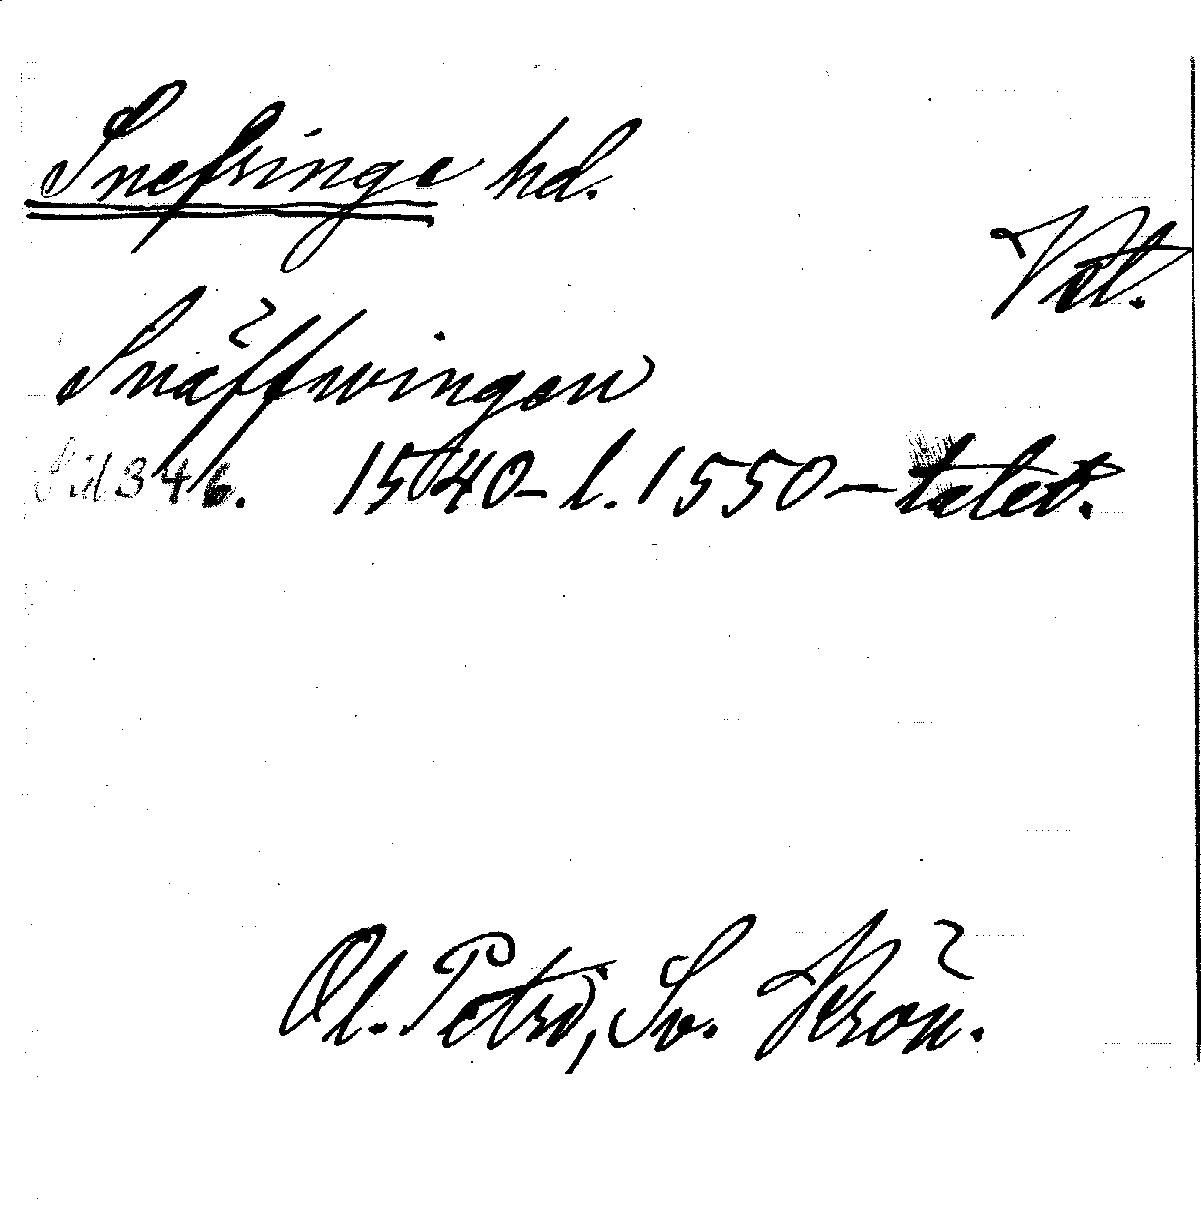 Snefringe hd.
Vstl.
Snäffwingen
Sid 346. 1540- l. 1550-talet.
Ol. Petri, Sv. Krön.